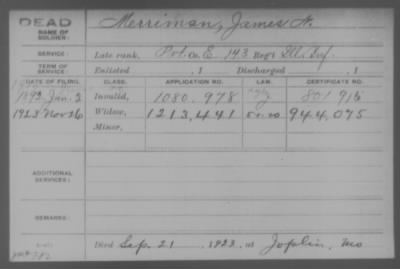 DEAD
NAME OF SOLDIER: Merriman, James N.
SERVICE: Late rank, Pvt. Co. E, 143 Reg't Ill. Inf.
TERM OF SERVICE Enlisted , 1 Discharged , 1
DATE OF FILING. CLASS. APPLICATION NO. LAW. CERTIFICATE NO.
1892 Jan. 2 Invalid, 1080.978 801 916
1923 Nov 26 Widow, 1213,441 944,075
Minor,
ADDITIONAL SERVICES:
REMARKS:
Died Sep. 21 1923, at Joplin, Mo